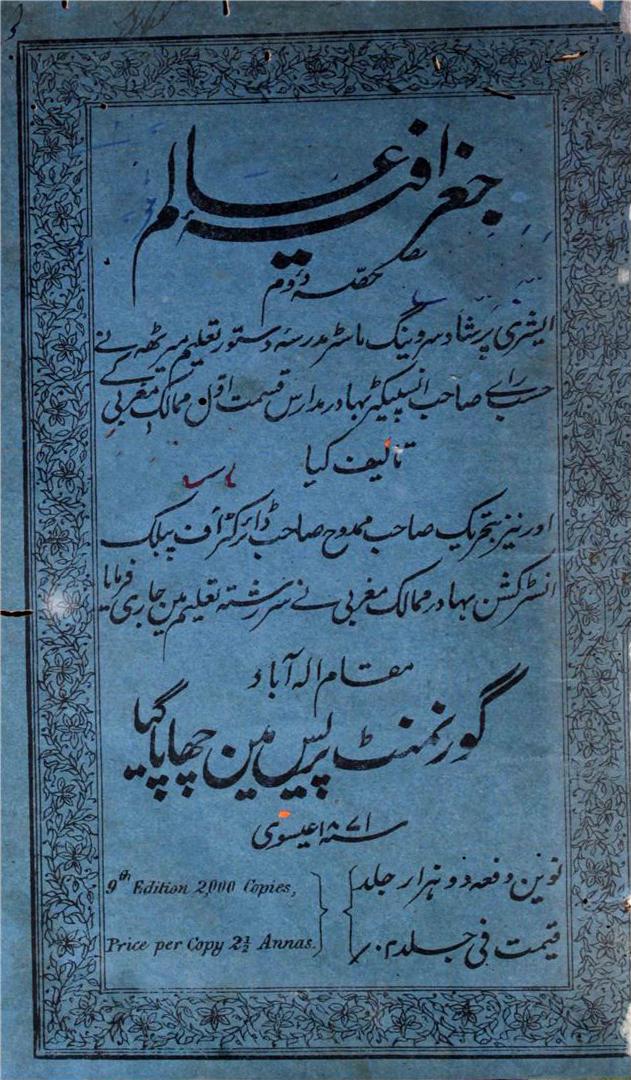 جغرافیۂ عالم
حصّہ دوم
ایشری پرشاد سروینگ ماسٹر مدرسۂ دستور تعلیم میرٹھہ نے
حسب راے صاحب انسپیکٹر بہادر مدارس قسمت اول ممالک مغربی کے
تالیف کیا
اور نیز بتحریک صاحب ممدوح صاحب ڈائرکٹر أف پبلک
انسٹرکشن بہادر ممالک مغربی نے سررشتہ تعلیم مین جاری فرمایا
مقام الہ آباد
گورنمنٹ پریس مین چھاپا گیا
سنہ ۱۸۷۱ عیسوی
نوین دفعہ دو ہزار جلد
9th Edition 2,000 Copies,
قیمت فی جلد
Price per Copy 2½ Annas.